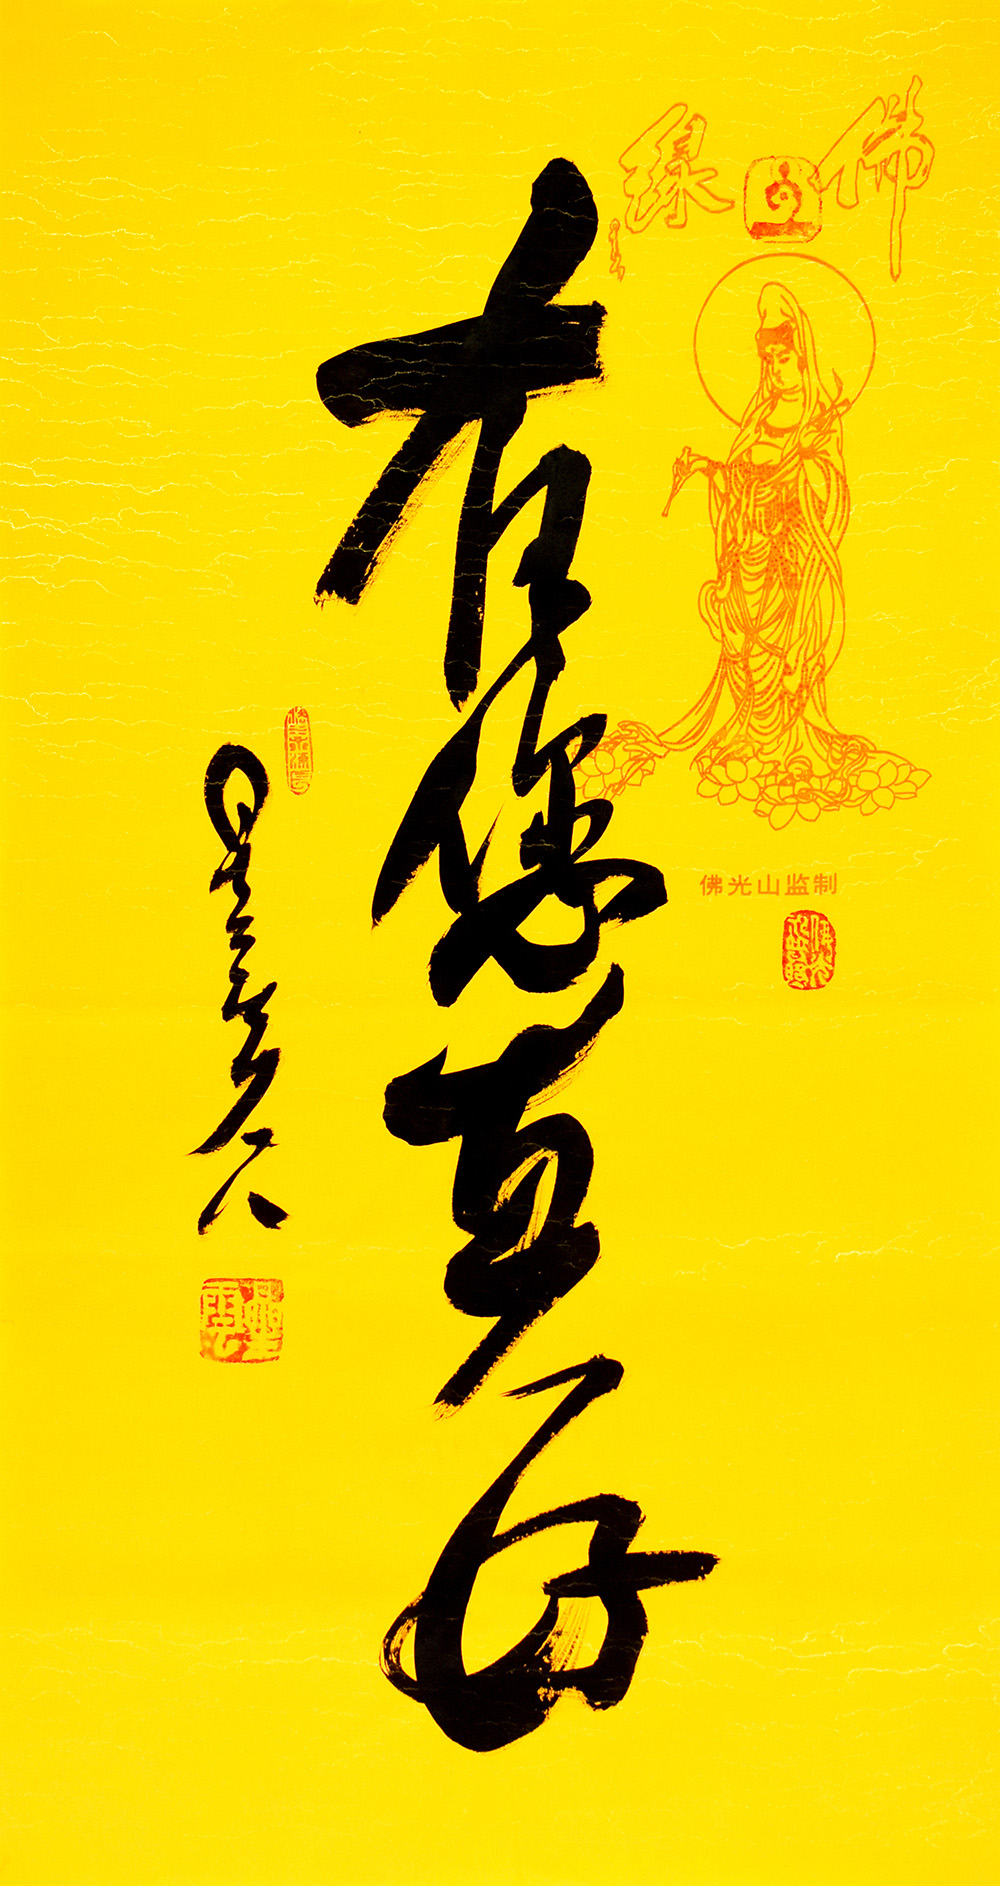 佛緣
佛光山监制
有您真好
星雲